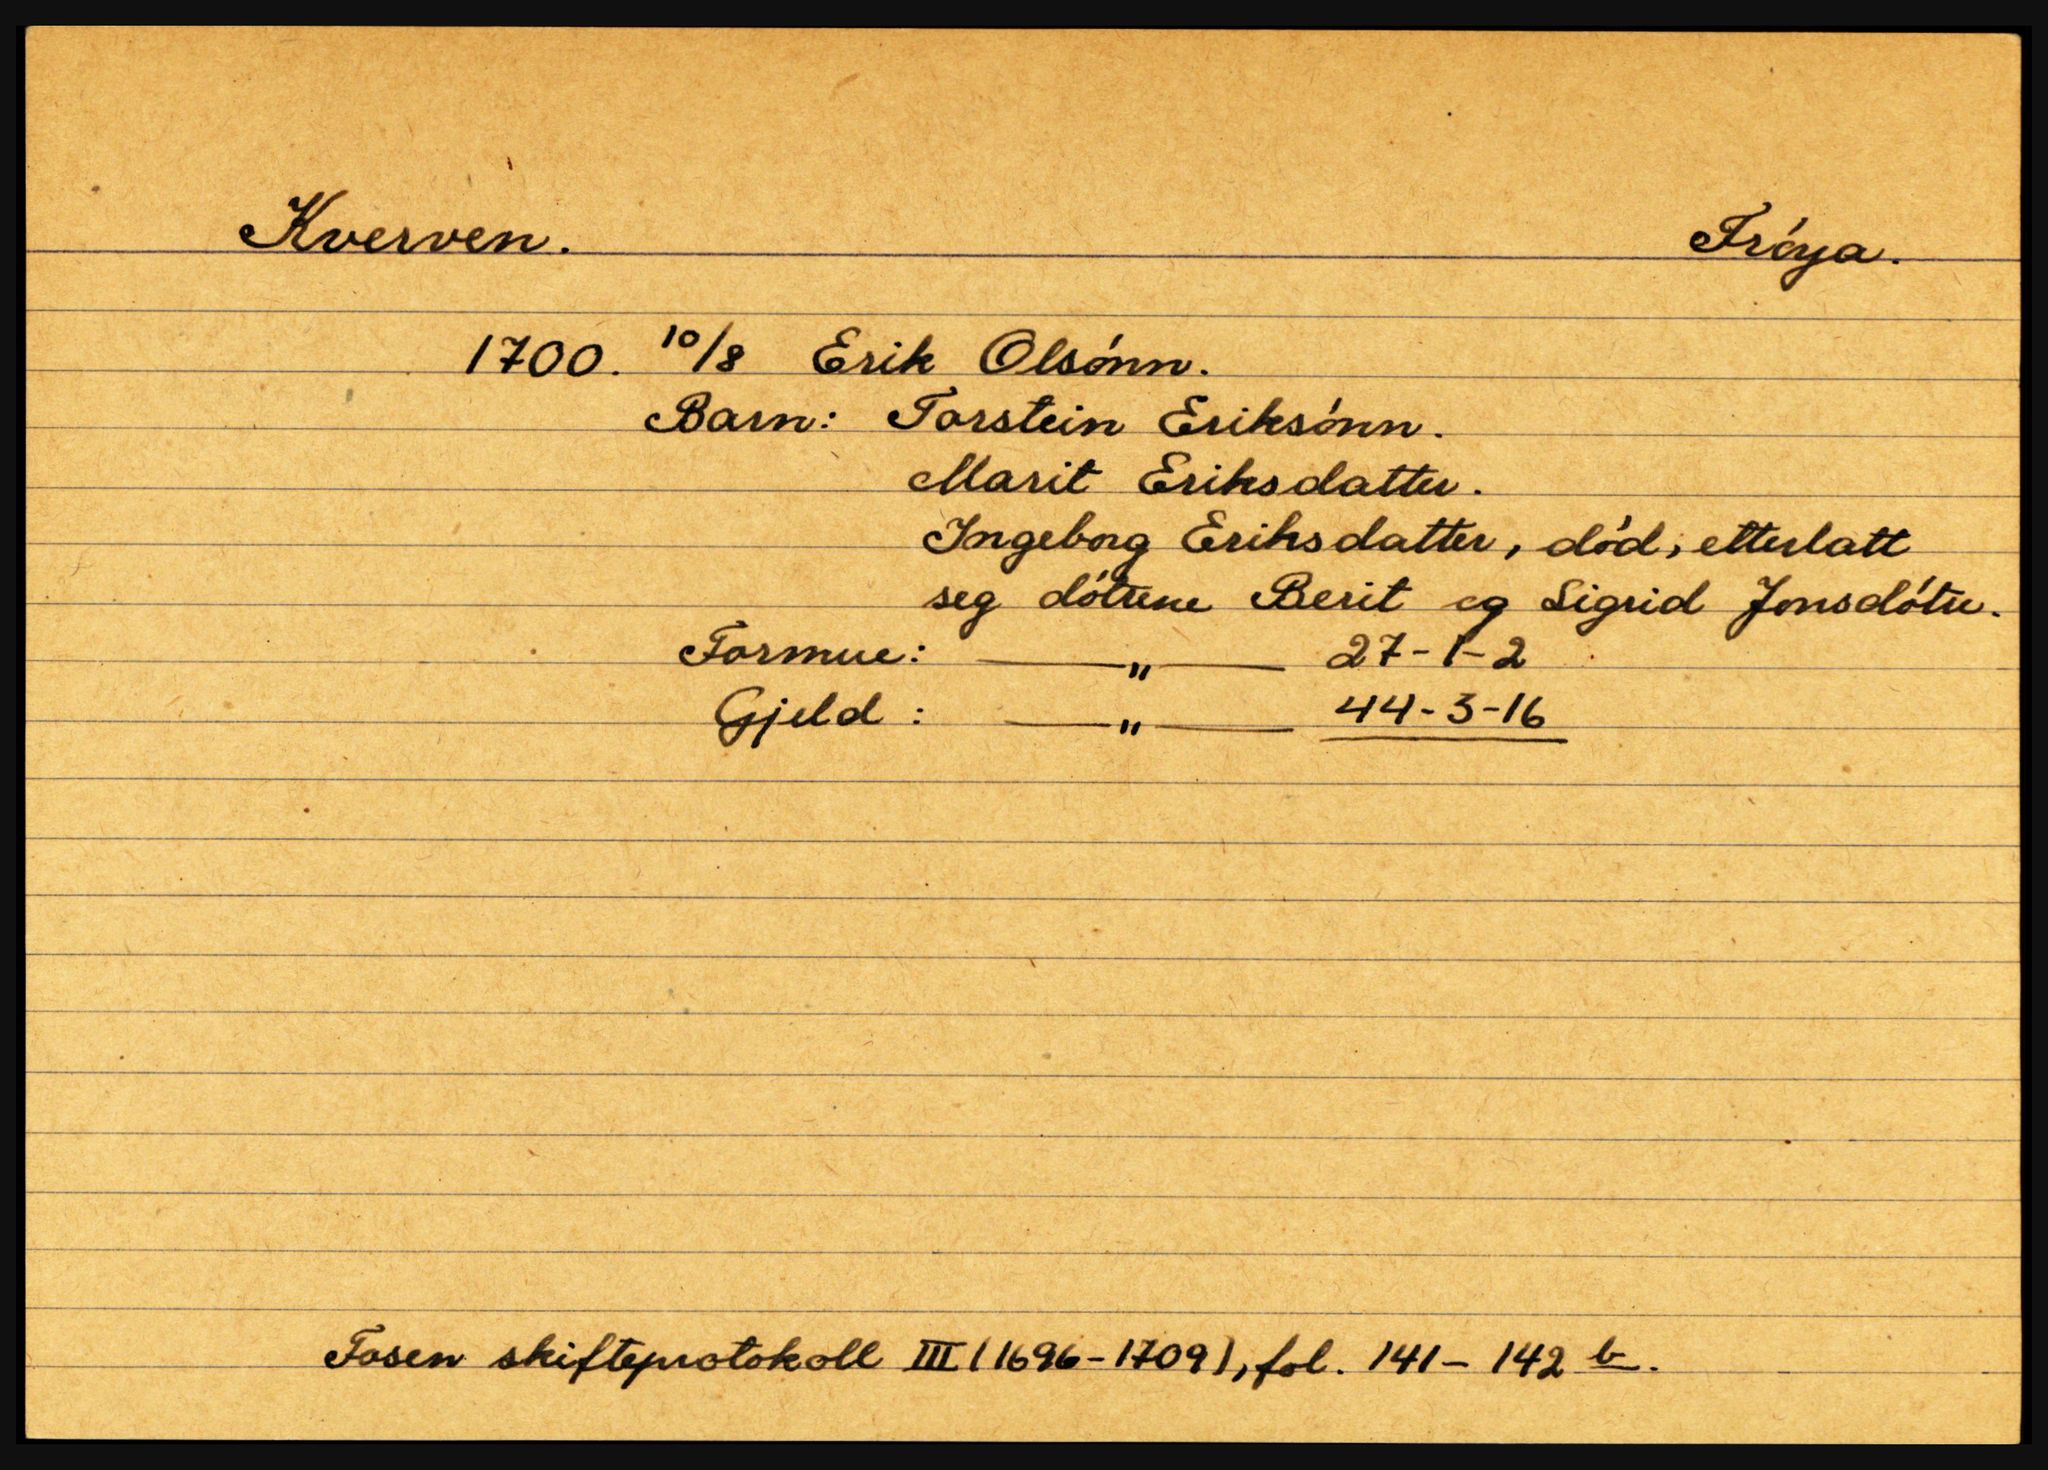 Kverven. Fróya.
1700. 10/8 Erik Olsónn.
Barn: Torstein Eriksónn.
Marit Eriksdatter.
Ingeborg Eriksdatter, dód, etterlatt
seg dótrene Berit og Sigrid Jonsdótre.
Formue: —"— 27-1-2
Gjeld: —"— 44-3-16
Fosen skifteprotokoll III (1696-1709), fol. 141-142 b.